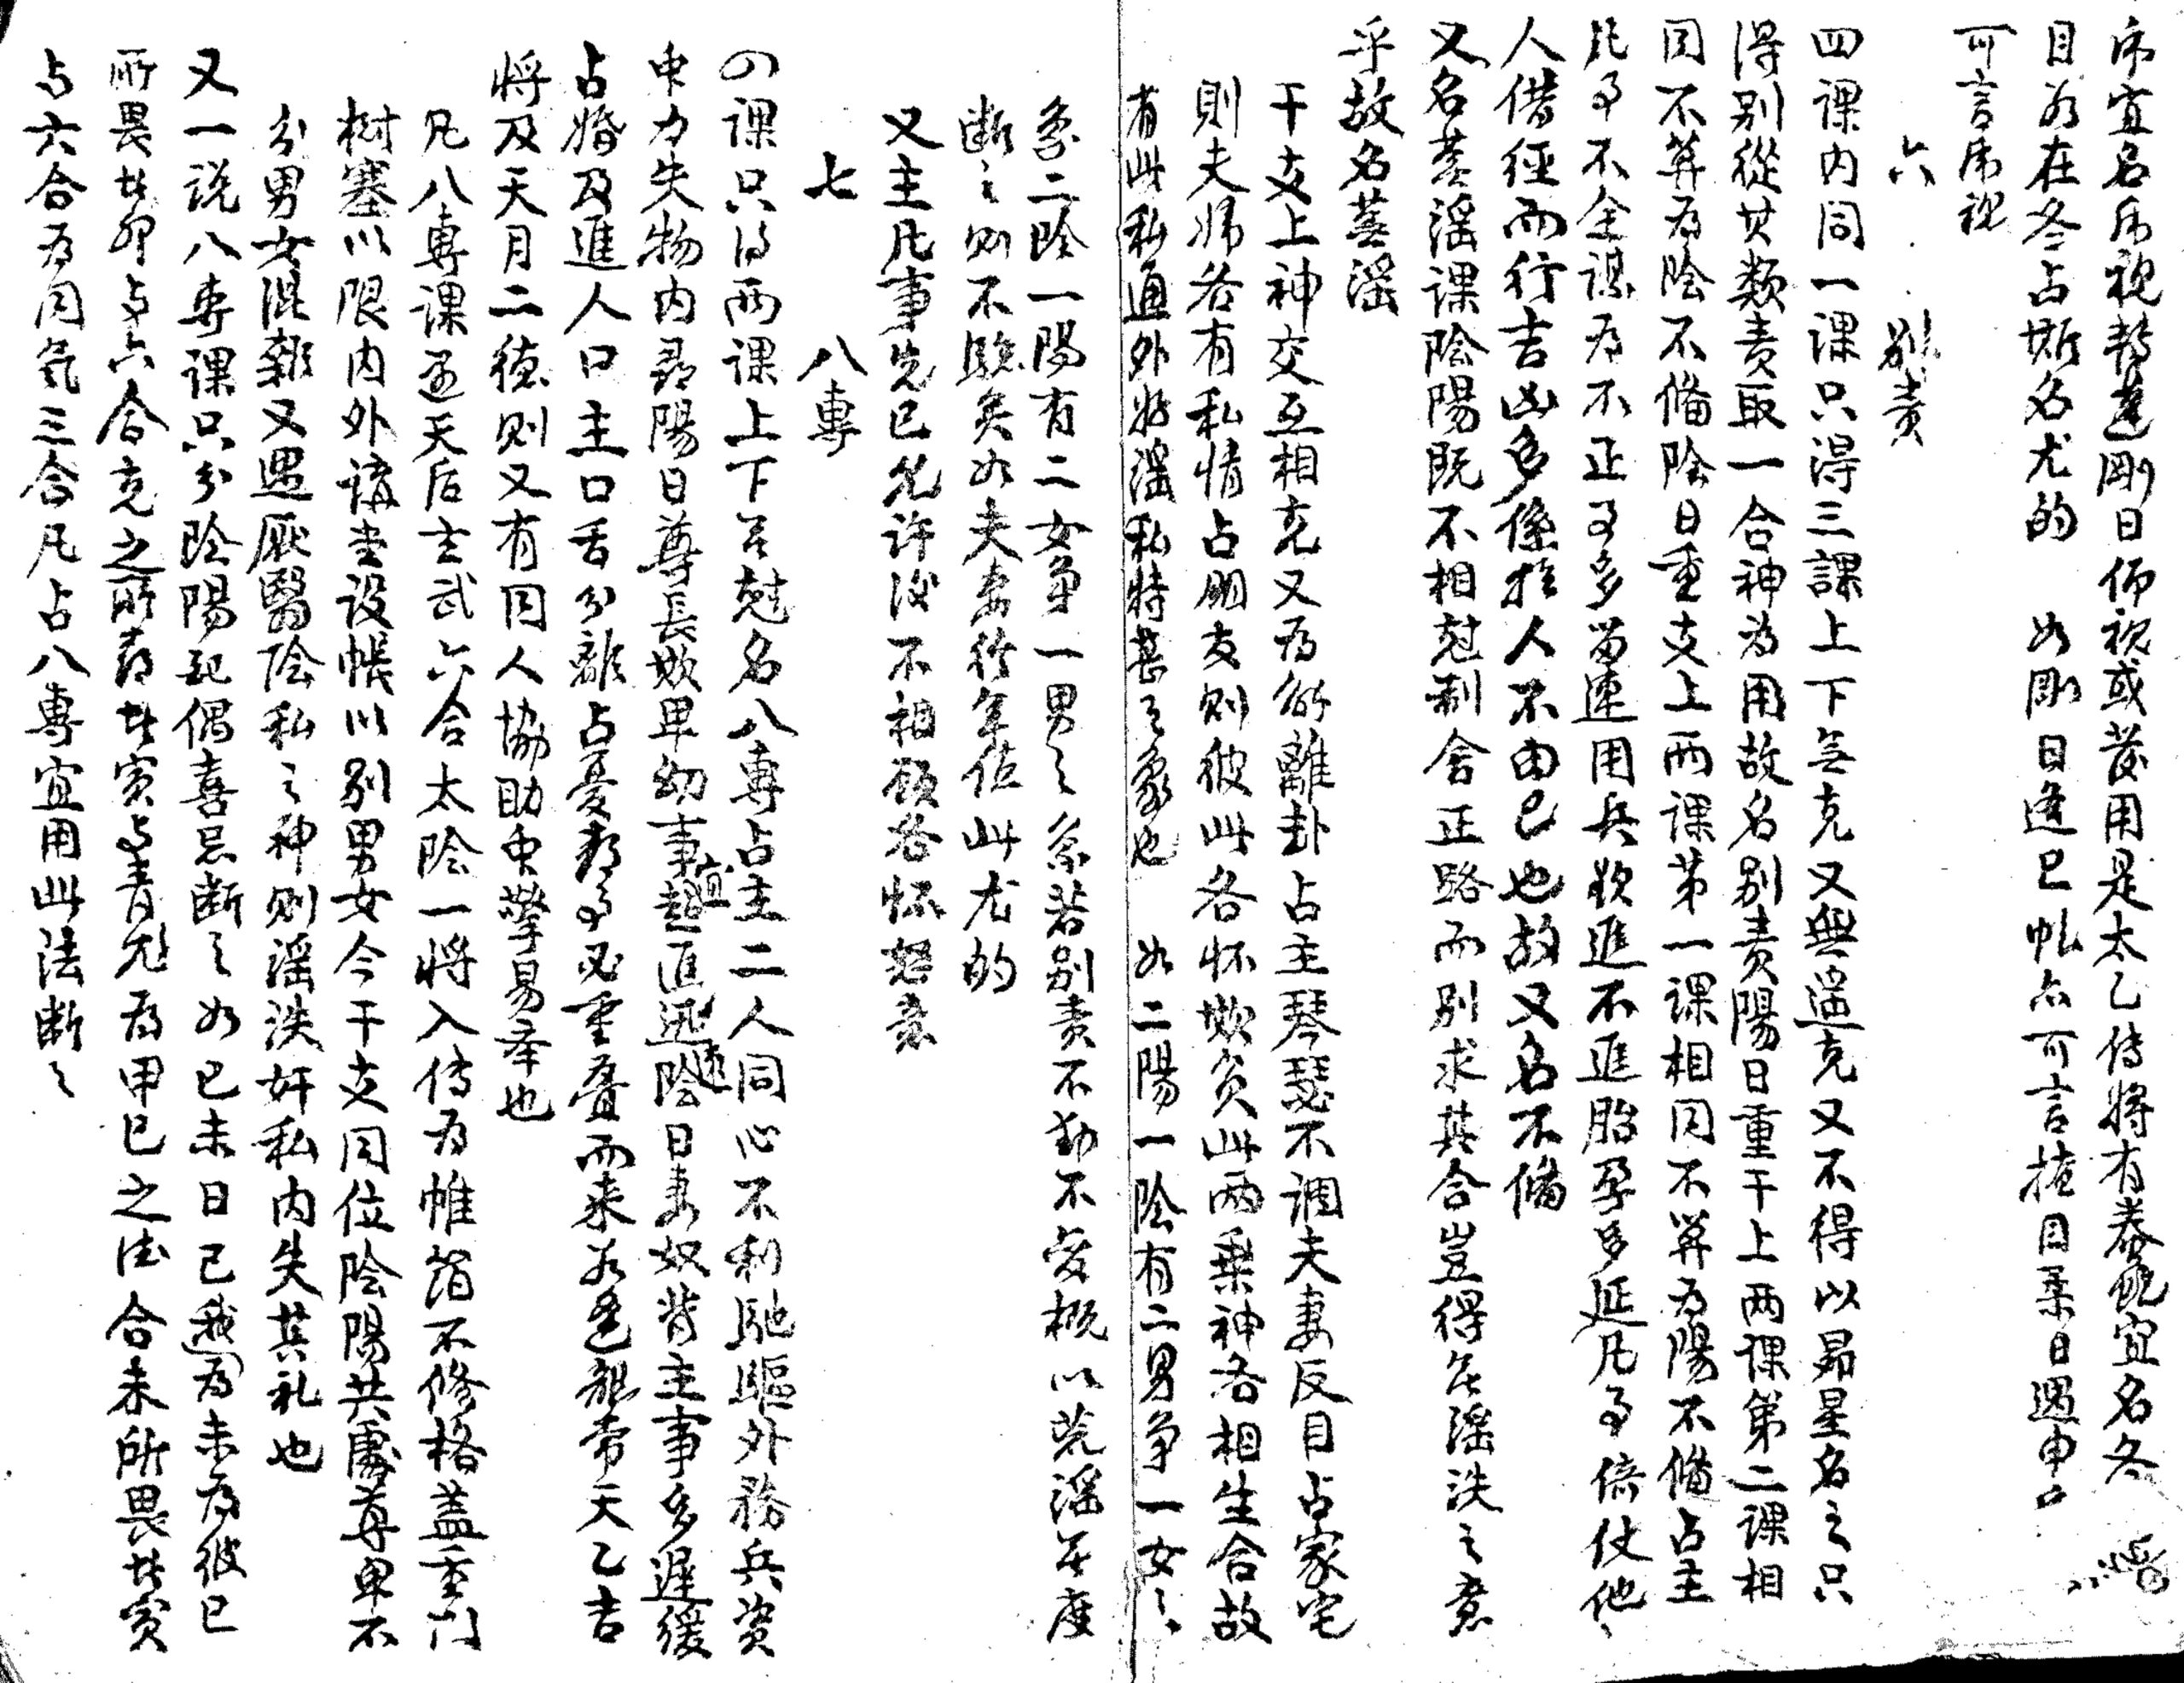 虎宜名虎視轉蓬剛日仰視或發用是太乙傳將有螣蛇宜名冬
目若在冬占斯名尤的　如剛日逢巳虵亦可言掩目柔日遇申
可言虎視
六　別責
四課內同一課只得三課上下無克又無遥克又不得以昴星名之只
得別從其類責取一合神為用故名別責陽日重干上兩課第二課相
同不算為陰不備陰日重支上兩課第一課相同不算為陽不備占主
凡事不全謀為不正事多留連用兵欲進不進胎孕多延凡事倚仗他
人借徑而行吉凶多係于人不由己也故又名不備
又名蕪淫課陰陽既不相尅制舍正路而別求其合豈得無淫泆之意
乎故名蕪淫
干支上神交互相克又為解離卦占主琴瑟不調夫妻反目占家宅
則夫婦各有私情占朋友則彼此各怀欺負此兩乘神各相生合故
有此私通外好淫私特甚之象也　如二陽一陰有二男争一女之
象二陰一陽有二女争一男之象若別責不動不變概以荒淫無度
斷之則不驗矣如夫妻行年值此尤的
又主凡事先已允許後不相顧各怀怒意
七　八專
四課只得兩課上下無尅名八專占主二人同心不利馳驅外務兵資
衆力失物內尋陽日尊長欺卑幼事宜超進迅速陰日妻奴背主事多遲緩
占婚及進人口主口舌分離占憂喜事必重疊而来若逢龍常天乙吉
將及天月二德則又有同人協助衆擎易舉也
凡八專課遇天后玄武六合太陰一將入传為帷箔不修格盖重门
樹塞以限内外講堂設帳以別男女今干支同位陰陽共處尊卑不
分男女混雜又遇厭翳陰私之神則淫泆奸私内失其礼也
又一説八專課只分陰陽配偶喜忌斷之如己未日己我為未為彼己
所畏者卯与六合克之所喜者寅与青龙為甲己之法合未所畏者寅
与六合為同氣三合凡占八專宜用此法斷之